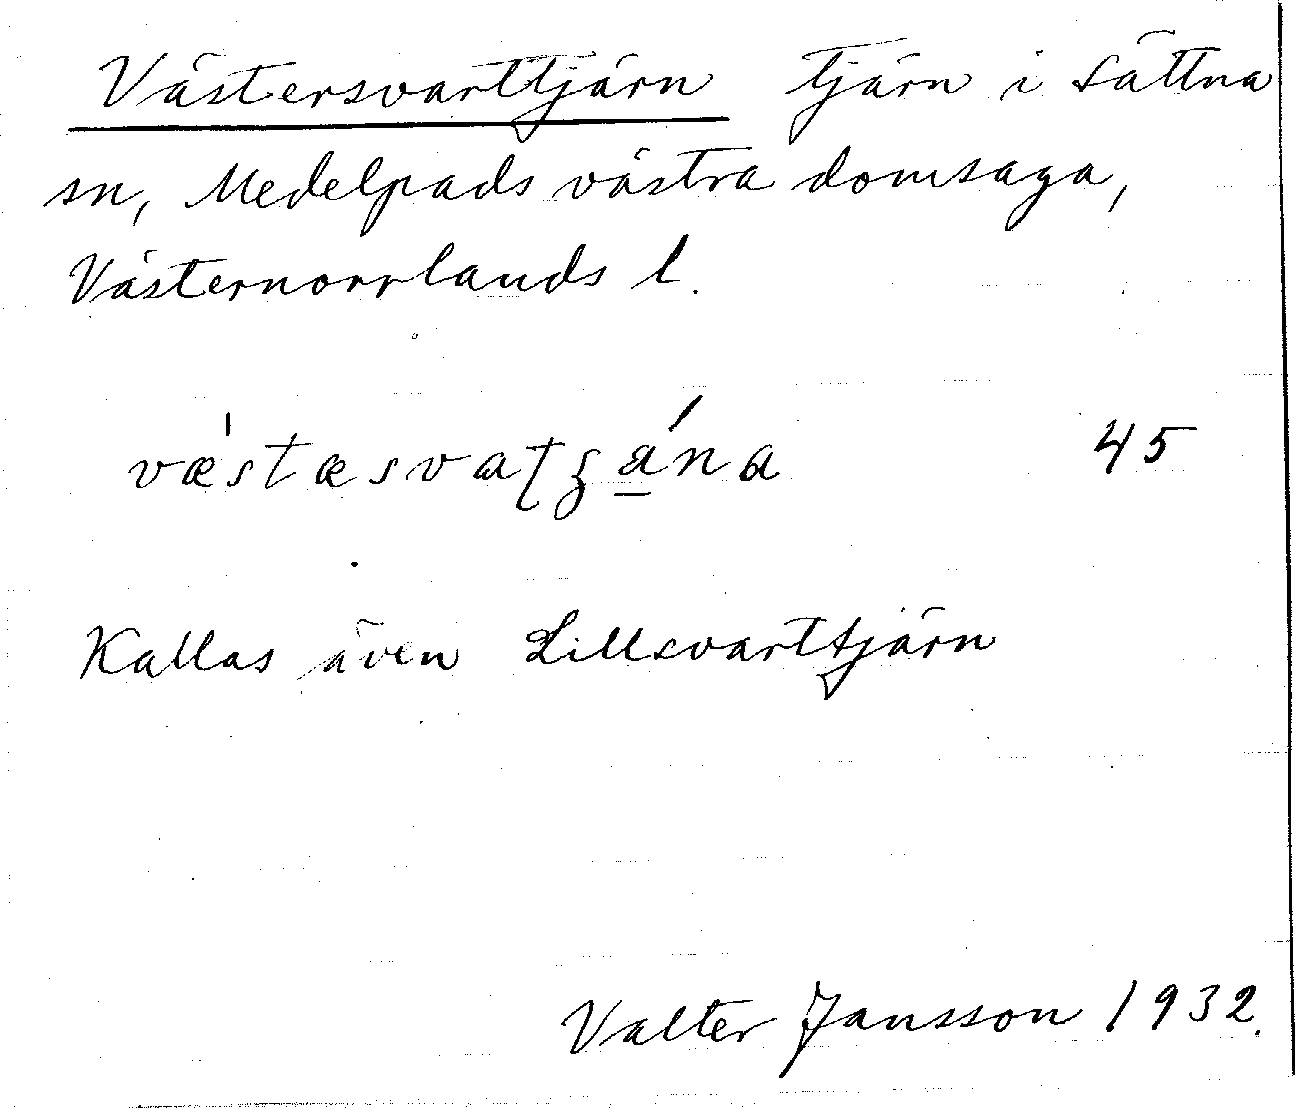 Västersvarttjärn tjärn i Sättna
sn, Medelpads västra domsaga,
Västernorrlands l.
væ̍stæsvaʈʒá̠na 45
Kallas även Lillsvarttjärn
Valter Jansson 1932.